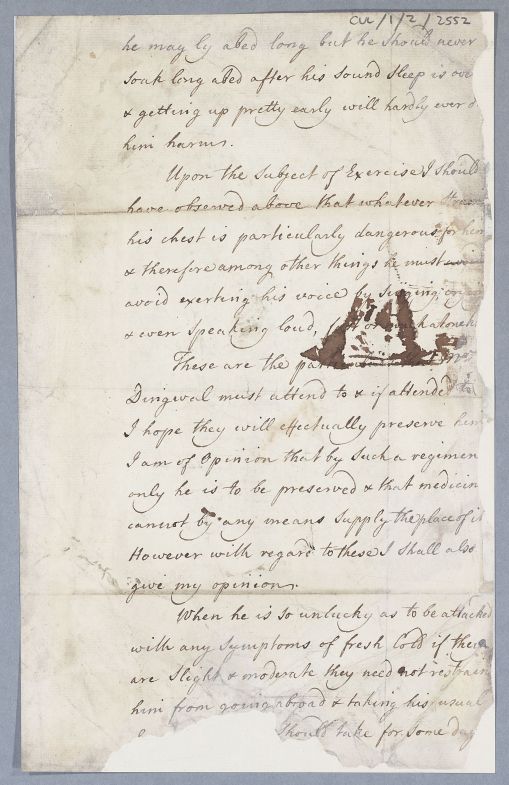 CUL/1/2/2552
he may ly abed long but he should never
soak long abed after his sound sleep is ove
& getting up pretty early will hardly ever d
him harm.
Upon the subject of Exercise I should
have observed above that whatever
his chest is particularly dangerous for him
& therefore among other things he must
avoid exerting his voice by singing, or
& even speaking loud,
These are the
Dingwal must attend to & if attended to
I hope they will effectually preserve him
I am of Opinion that by such a regimen
only he is to be preserved & that medicin
cannot by any means supply the place of it
However with regard to these I shall also
give my opinion.
When he is so unlucky as to be attacked
with any symptoms of fresh Cold if these
are slight & moderate they need not restrain
him from going abroad & taking his usual
should take for some day